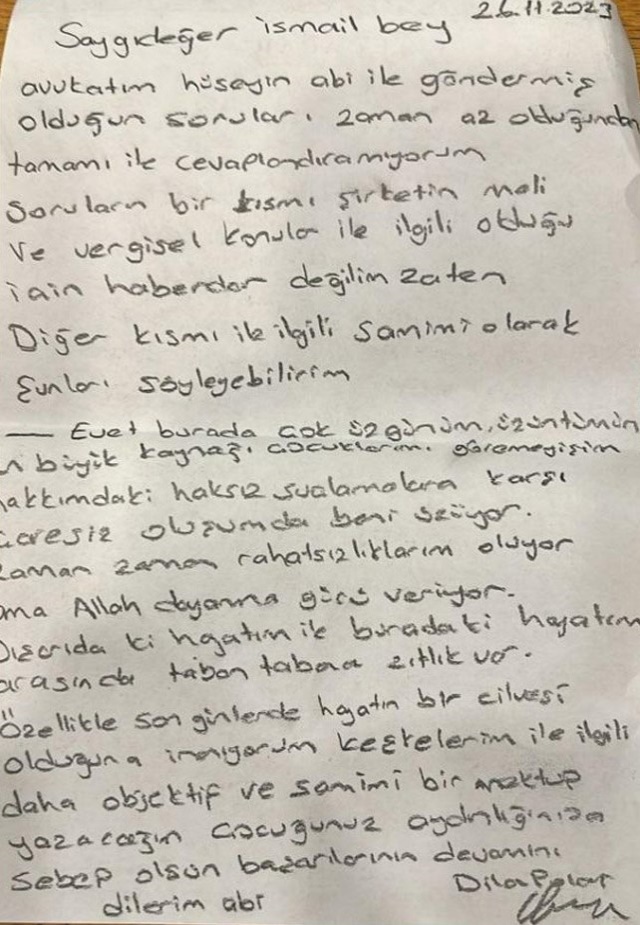 26.11.2023
Saygıdeğer ismail bey
avukatım hüseyin abi ile göndermiş
olduğun soruları zaman az olduğundan
tamamı ile cevaplandıramıyorum
Soruların bir kısmı şirketin mali
ve vergisel konular ile ilgili olduğu
için haberdar değilim zaten
Diğer kısmı ile ilgili samimi olarak
şunları söyleyebilirim
— Evet burada çok üzgünüm, üzüntümün
n büyük kaynağı çocuklarımı göremeyişim
hakkımdaki haksız suçlamalara karşı
çaresiz oluşumda beni üzüyor.
zaman zaman rahatsızlıklarım oluyor
ama Allah dayanma gücü veriyor.
Dışarıda ki hayatım ile buradaki hayatım
arasında taban tabana zıtlık var.
Özellikle son günlerde hayatın bir cilvesi
olduğuna inanıyorum keşkelerim ile ilgili
daha objektif ve samimi bir mektup
yazacağım çocuğunuz aydınlığınıza
Sebep olsun başarılarının devamını
dilerim abi
Dila Polat